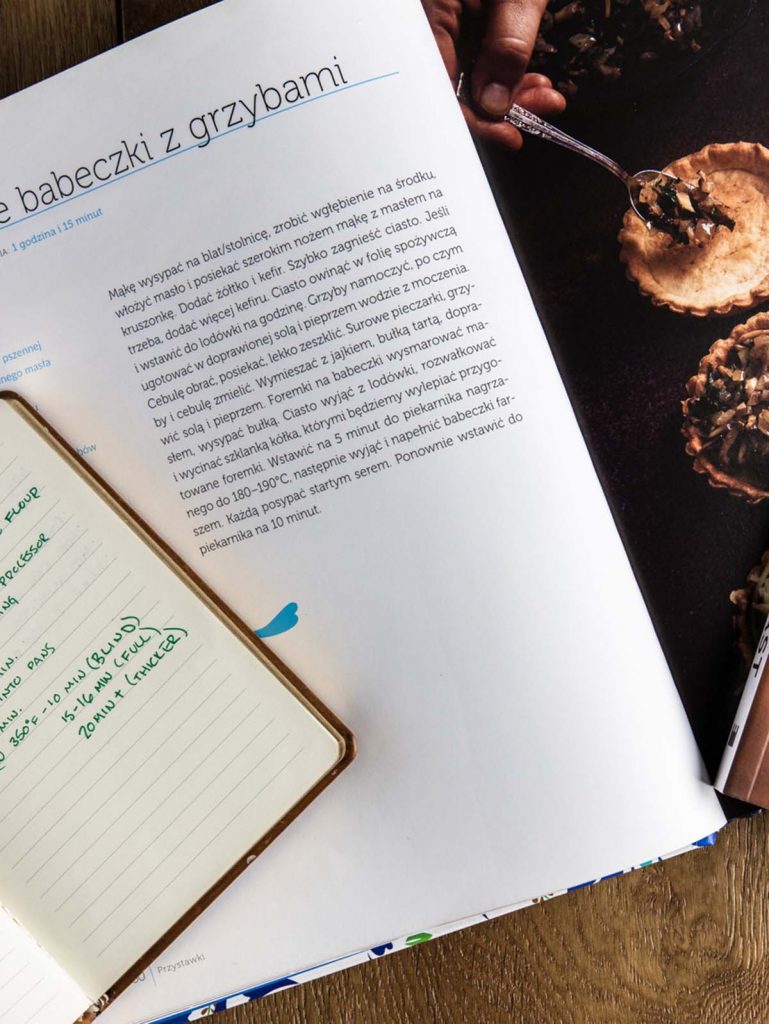 e babeczki z grzybami
IA: 1 godzina i 15 minut
pszennej
nego masła
bów
Mąkę wysypać na blat/stolnicę, zrobić wgłębienie na środku,
włożyć masło i posiekać szerokim nożem mąkę z masłem na
kruszonkę. Dodać żółtko i kefir. Szybko zagnieść ciasto. Jeśli
trzeba, dodać więcej kefiru. Ciasto owinąć w folię spożywczą
i wstawić do lodówki na godzinę. Grzyby namoczyć, po czym
ugotować w doprawionej solą i pieprzem wodzie z moczenia.
Cebulę obrać, posiekać, lekko zeszklić. Surowe pieczarki, grzy-
by i cebulę zmielić. Wymieszać z jajkiem, bułką tartą, dopra-
wić solą i pieprzem. Foremki na babeczki wysmarować ma-
słem, wysypać bułką. Ciasto wyjąć z lodówki, rozwałkować
i wycinać szklanką kółka, którymi będziemy wylepiać przygo-
towane foremki. Wstawić na 5 minut do piekarnika nagrza-
nego do 180–190°C, następnie wyjąć i napełnić babeczki far-
szem. Każdą posypać startym serem. Ponownie wstawić do
piekarnika na 10 minut.
FLOUR
PROCESSOR
NG
IN.
INTO PANS
MIN.
350°F - 10 MIN (BLIND)
15-16 MIN (FULL)
20MIN + (THICKER)
0 | Przystawki
ST